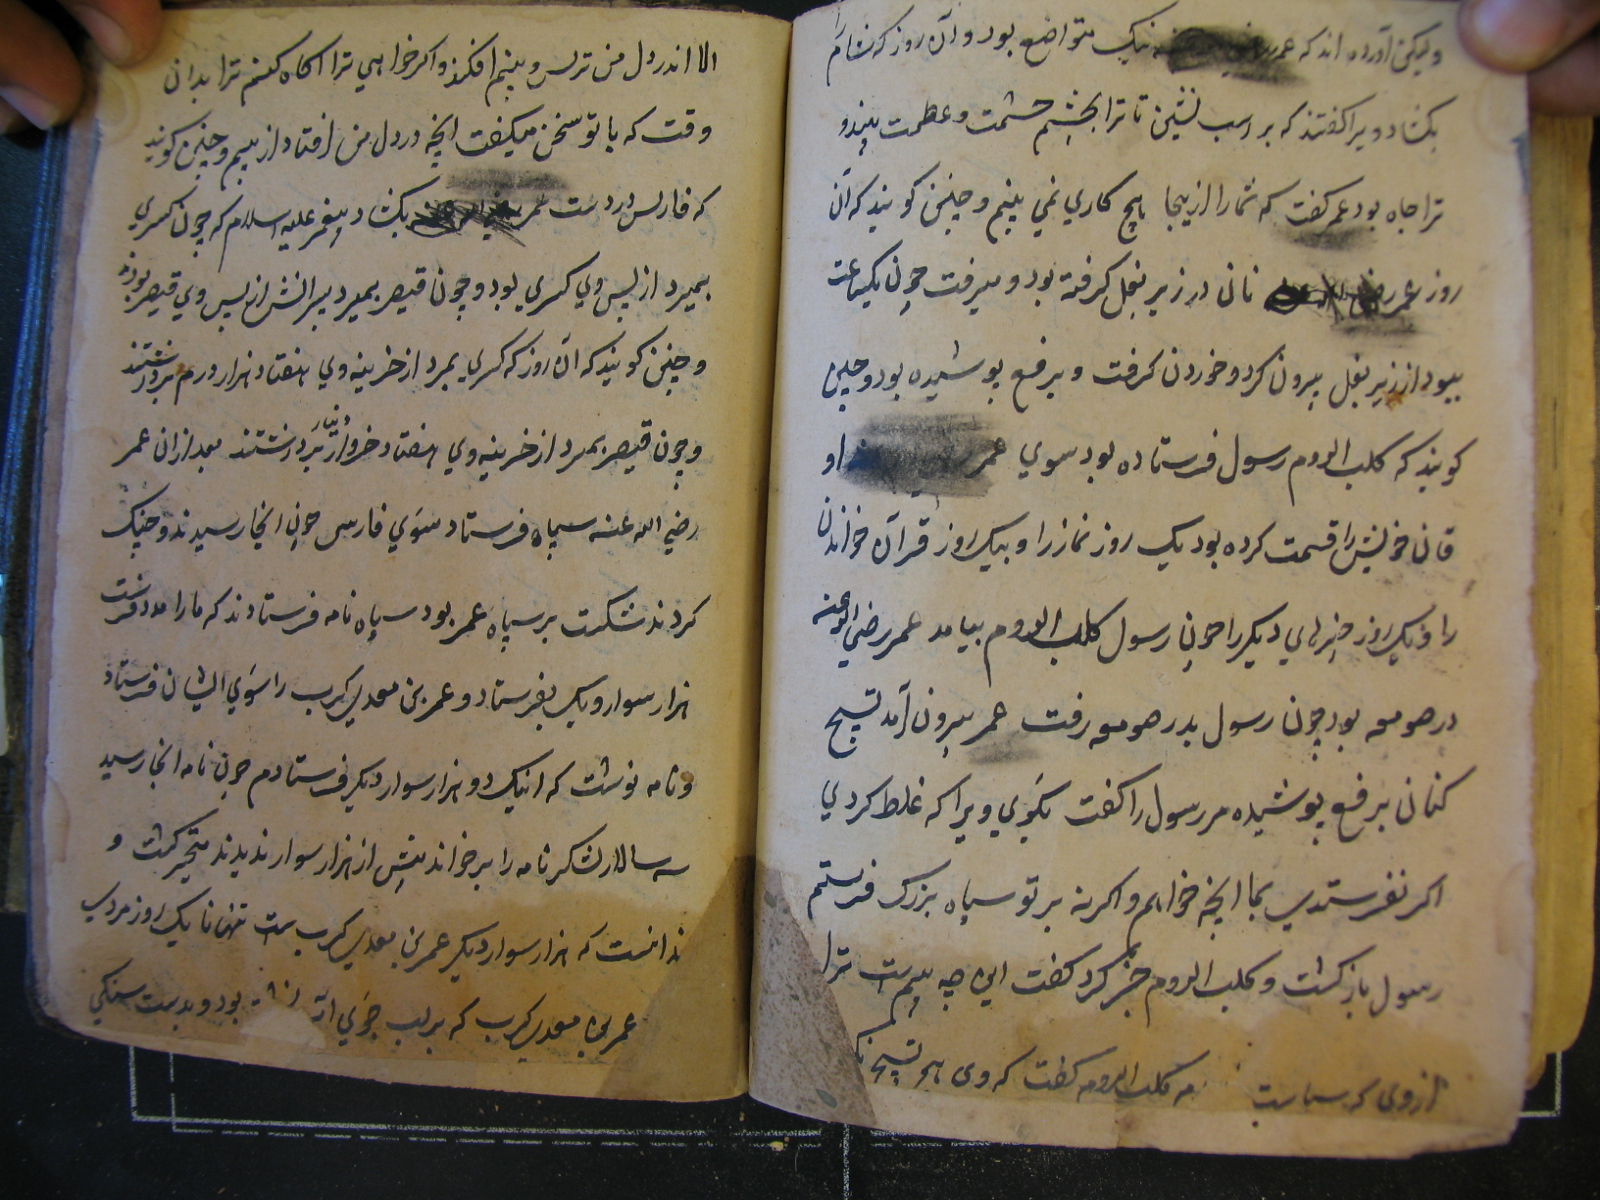 ولیکن آورده اند که عمر نیک متواضع بود و آن روز که شام را
بکشاد ویرا کفتند که بر اسب نشین تا ترا بچشم حشمت و عظمت بینند و
ترا جاه بود عمر کفت که شما را ازینجا هیچ کاری نمی بینم و چنین کویند که آن
روز عمر نانی در زیر بغل کرفته بود و میرفت چون یکساعت
ببود از زیر بغل بیرون کرد و خوردن کرفت و برقع پوشیده بود و چنین
کویند که کلب الروم رسول فرستاده بود سوی عمر او
خویش را قسمت کرده بود یک روز نماز را و یک روز قرآن خواندن
را و یک روز چیزهای دیکر را چون رسول کلب الروم بیامد عمر رضی الله عنه
در صومعه بود چون رسول بدر صومعه رفت عمر بیرون آمد تسبیح
کنان برقع پوشیده مر رسول را کفت بکوی ویرا که غلط کردی
اکر نفرستدی بما آنچه خواهم و اکر نه بر تو سپاه بزرک فرستم
رسول باز کشت و کلب الروم خبر کرد کفت این چه بیم است ترا
ازوی که کلب الروم کفت که وی هر تسبیح
الا اندر دل من ترس و بیم افکند و اکر خواهی ترا آکاه کنم ترا بدان
وقت که با تو سخن میکفت آنچه در دل من افتاد از بیم و چنین کویند
که فارس در دست عمر بکشاد پیغمبر علیه السلام که چون کسری
بمیرد از پس وی کسری بود و چون قیصر بمیرد پسرانش از پس وی قیصر بودند
و چنین کویند که آن روز که کسری بمرد از خزینه وی هفتاد هزار درم برداشتند
و چون قیصر بمرد از خزینه وی هفتاد خروار دینار برداشتند بعد از آن عمر
رضی الله عنه سپاه فرستاد سوی فارس چون آنجا رسیدند و جنک
کردند شکست بر سپاه عمر بود سپاه نامه فرستادند که ما را مدد فرست
هزار سوار و یک بفرستاد و عمر بن معدی کرب را سوی ایشان فرستاد
و نامه نوشت که اینک دو هزار سوار دیکر فرستادم چون نامه آنجا رسید
سه سالار لشکر نامه را بر خواند بیش از هزار سوار ندیدند متحیر کشت و
ندانست که هزار سوار دیکر عمر بن معدی کرب ست تنها تا یک روز مردی
عمر بن معدی کرب که بر لب جوی بود و بدست سنکی